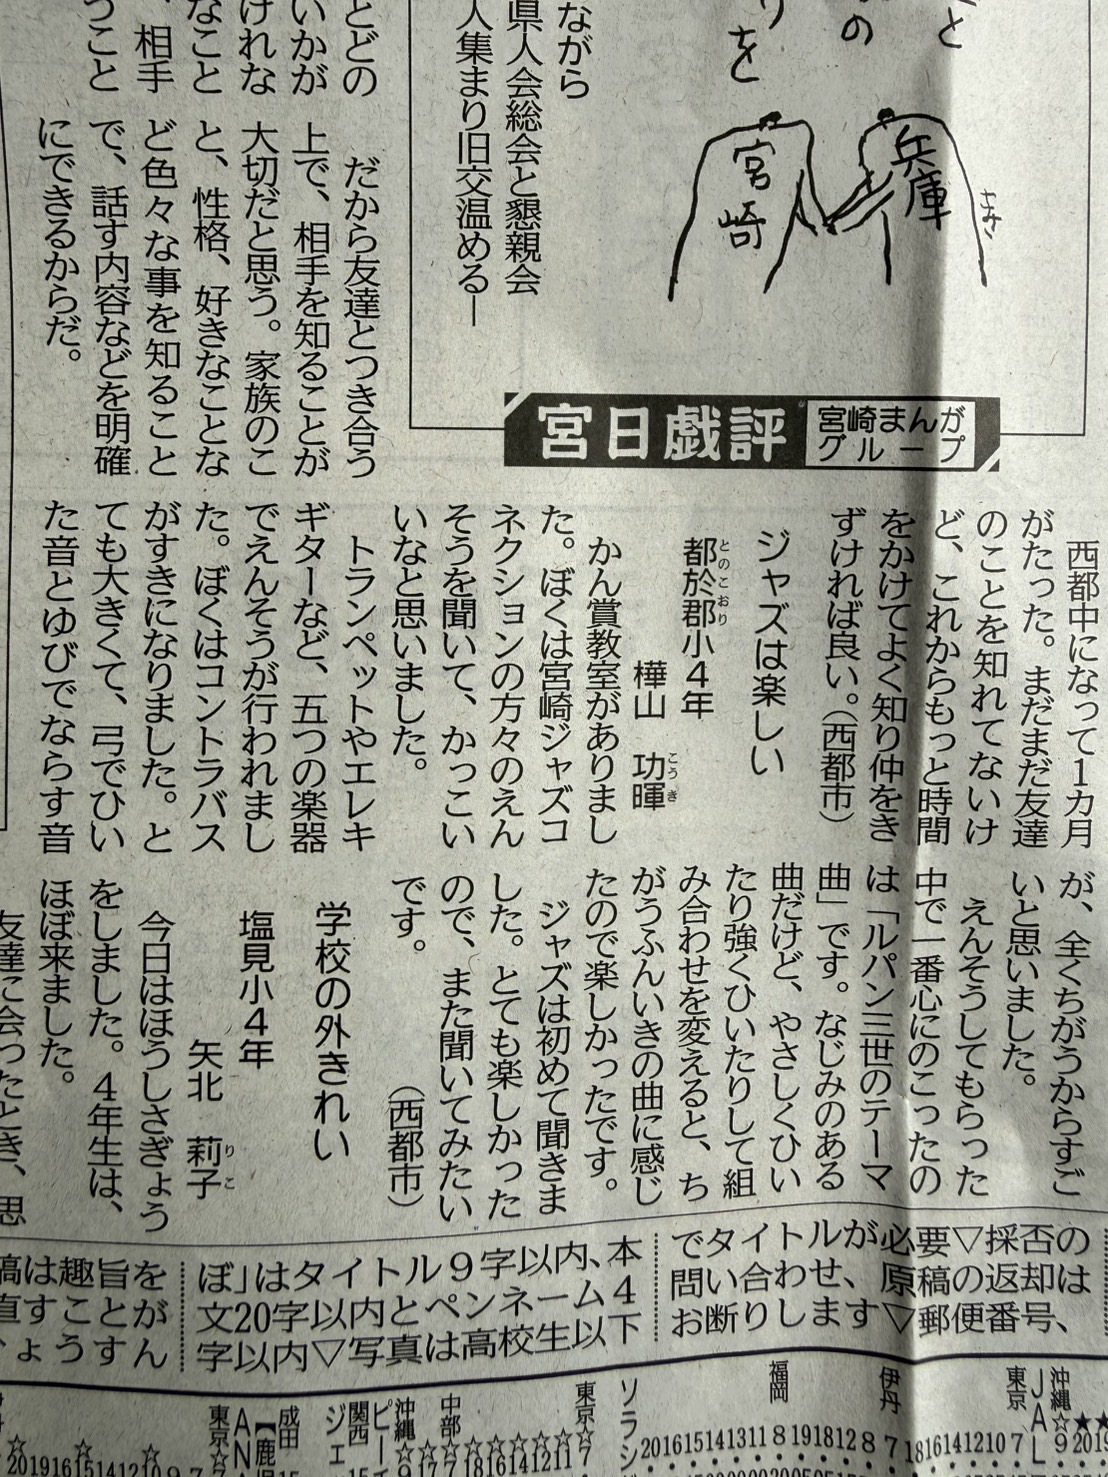 と
の
りを
兵庫
宮崎
ながら
県人会総会と懇親会
人集まり旧交温める―
宮日戯評
宮崎まんが
グループ
とどの
いかが
けれな
なこと
、相手
つこと
だから友達とつき合う
上で、相手を知ることが
大切だと思う。家族のこ
と、性格、好きなことな
ど色々な事を知ること
で、話す内容などを明確
にできるからだ。
西都中になって1カ月
がたった。まだまだ友達
のことを知れてないけ
ど、これからもっと時間
をかけてよく知り仲をき
ずければ良い。（西都市）
ジャズは楽しい
都於郡小4年
とのこおり
樺山 功暉
こうき
かん賞教室がありまし
た。ぼくは宮崎ジャズコ
ネクションの方々のえん
そうを聞いて、かっこい
いなと思いました。
トランペットやエレキ
ギターなど、五つの楽器
でえんそうが行われまし
た。ぼくはコントラバス
がすきになりました。と
ても大きくて、弓でひい
た音とゆびでならす音
が、全くちがうからすご
いと思いました。
えんそうしてもらった
中で一番心にのこったの
は「ルパン三世のテーマ
曲」です。なじみのある
曲だけど、やさしくひい
たり強くひいたりして組
み合わせを変えると、ち
がうふんいきの曲に感じ
たので楽しかったです。
ジャズは初めて聞きま
した。とても楽しかった
ので、また聞いてみたい
です。（西都市）
学校の外きれい
塩見小4年
矢北 莉子
りこ
今日はほうしさぎょう
をしました。4年生は、
ほぼ来ました。
友達に会ったとき、思
でタイトルが必要▽採否の
問い合わせ、原稿の返却は
お断りします▽郵便番号、
ぼ」はタイトル9字以内、本
文20字以内とペンネーム4
字以内▽写真は高校生以下
稿は趣旨を
直すことが
ょうすん
沖縄☆9
JAL
東京7
伊丹7
福岡
ソラシ
東京☆7
中部
沖縄
ピー
関西
ジェ
成田
東京
AN
20 16 15 14 13 11 8 19 18 12 8
18 16 14 12 10 7
18 16 14 12 11
20 19 16 15 14 12 10 9